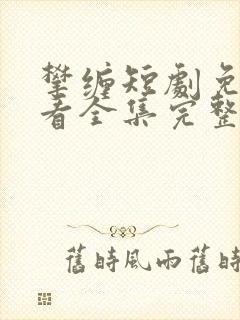 攀缠短劇免
看全集完整
舊時風雨舊時